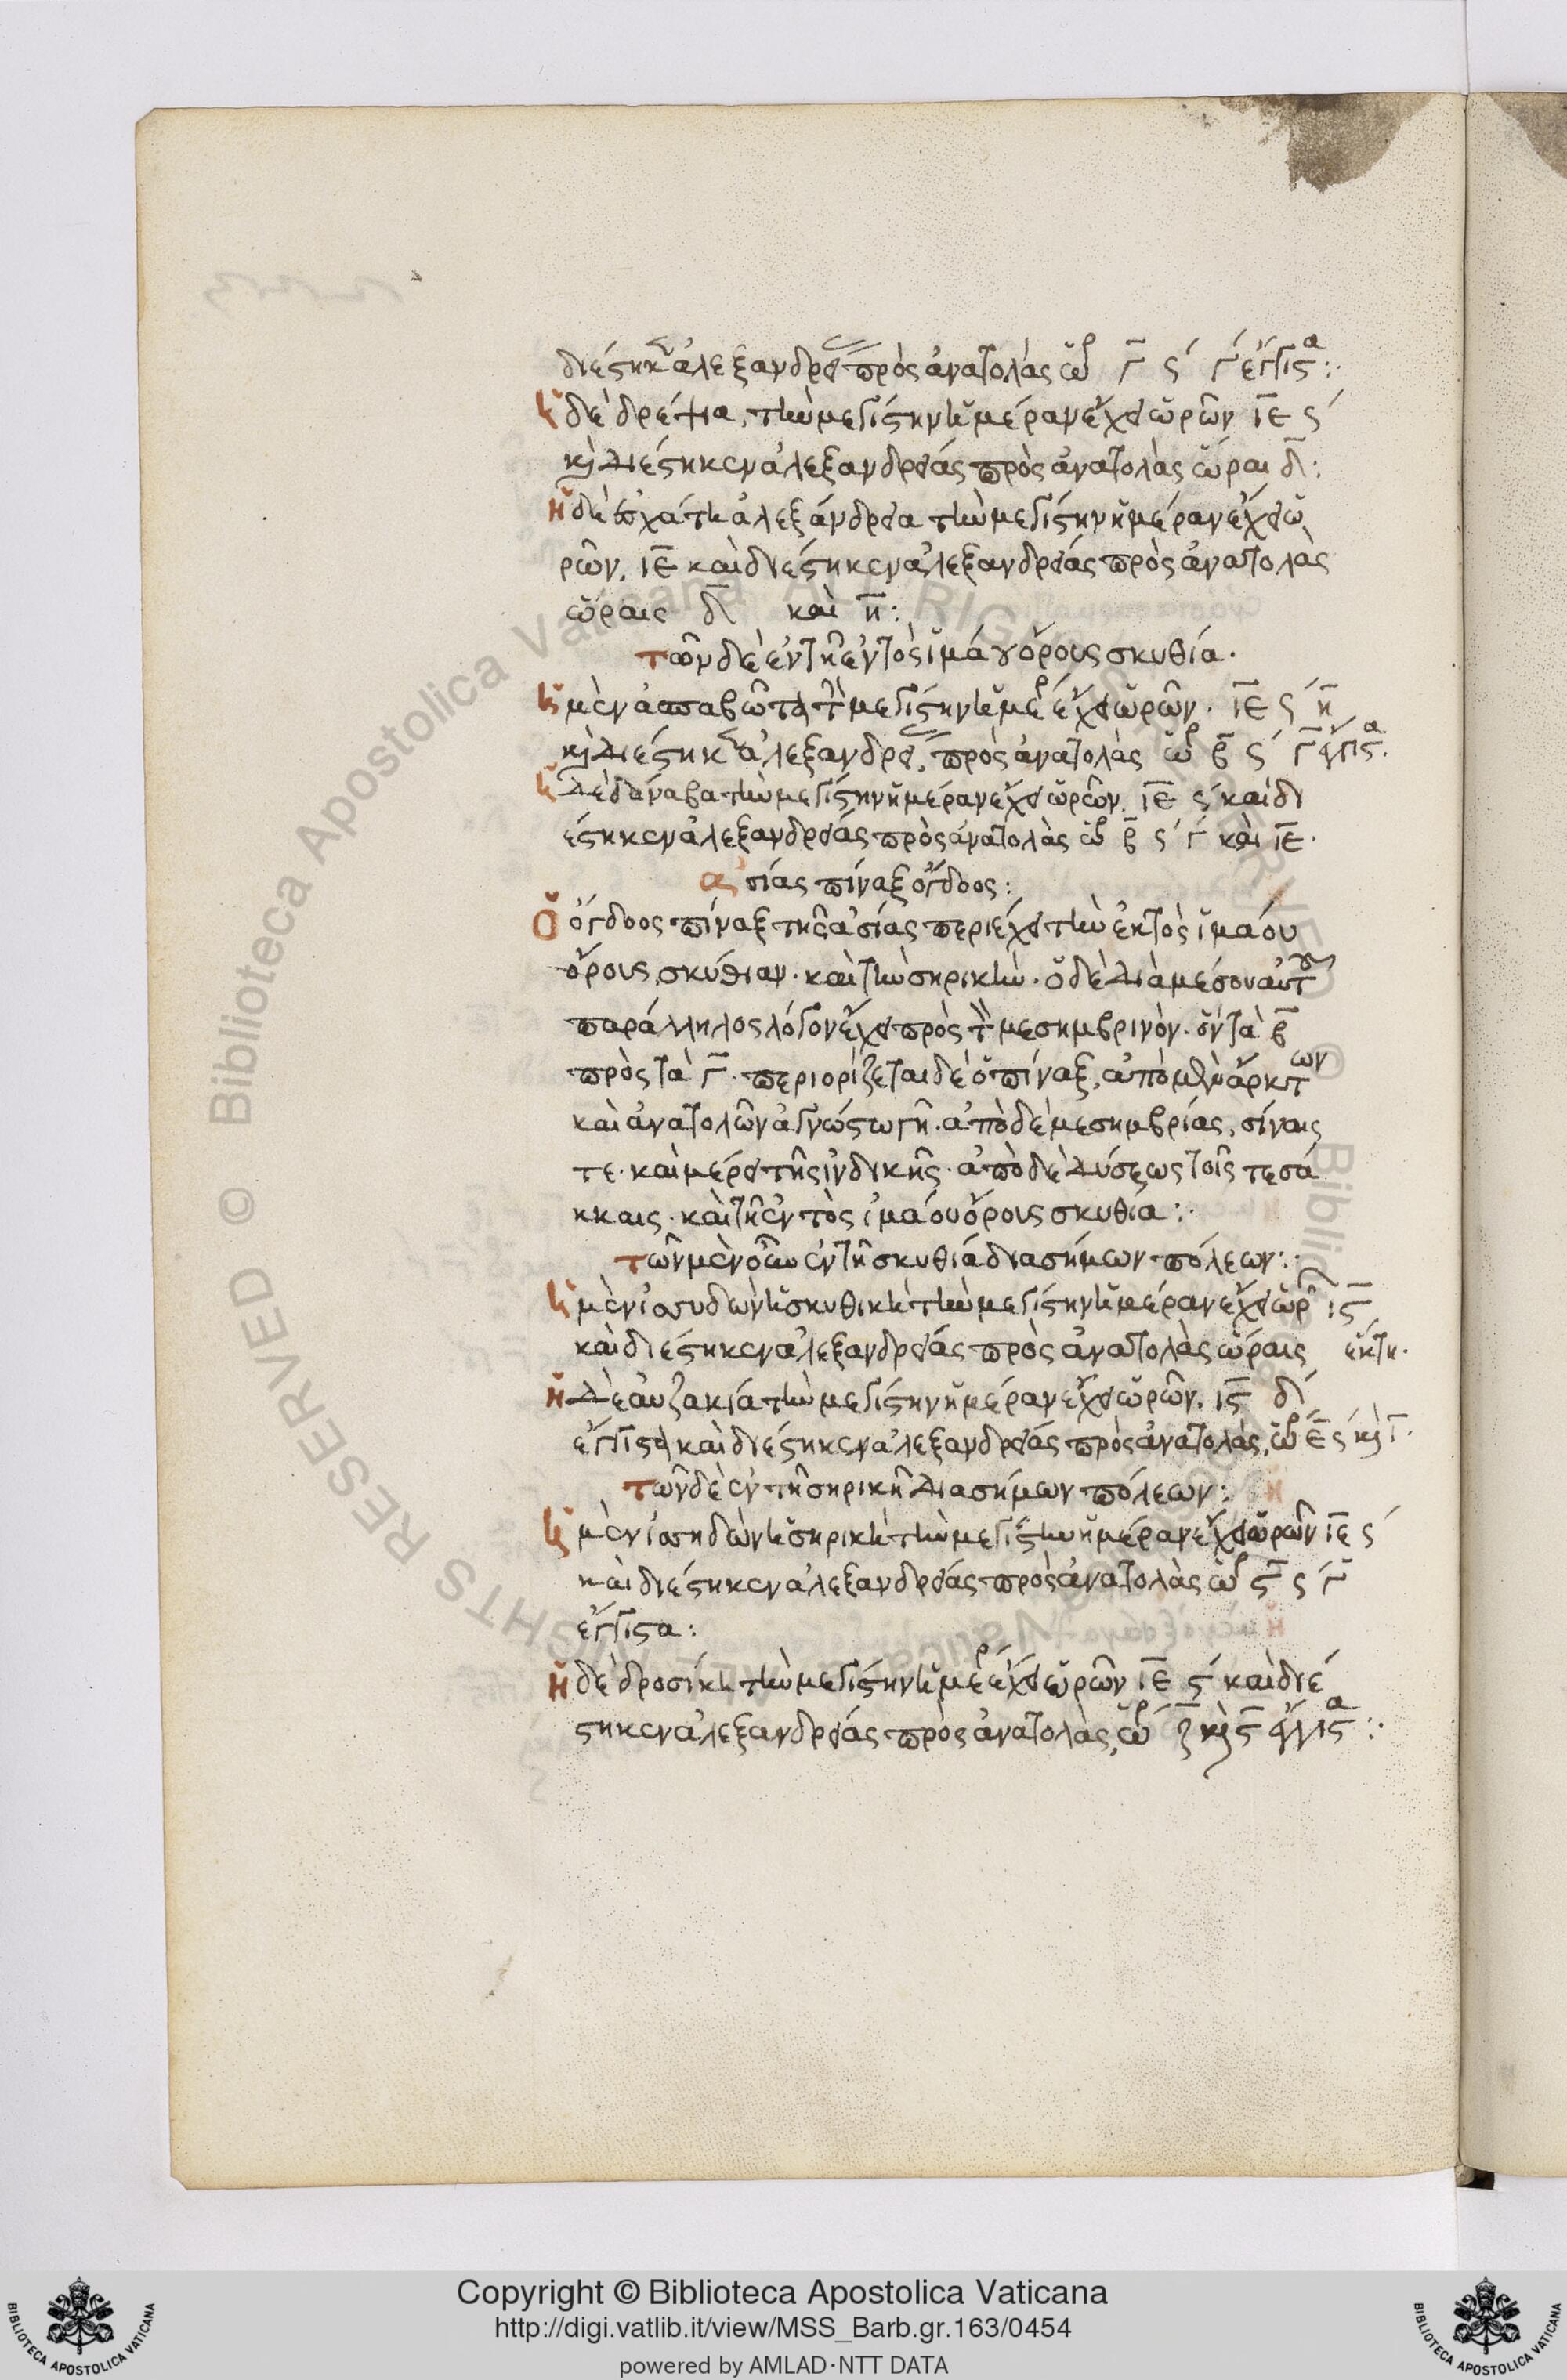 διέστηκ(εν) ἀλεξανδρεί(ας) πρὸς ἀνατολὰς ὥρ γ ς΄ γ΄ ἔγγιστα:
ἡ δὲ δρέψια, τὴν μεγίστην ἡμέραν ἔχει ὡρῶν ιε ς΄
καὶ διέστηκεν ἀλεξανδρείας πρὸς ἀνατολὰς ὥραι δ:
ἡ δὲ ἐσχάτη ἀλεξάνδρεια τὴν μεγίστην ἡμέραν ἔχει ὡ
ρῶν, ιε καὶ διέστηκεν ἀλεξανδρείας πρὸς ἀνατολὰς
ὥραις δ καὶ η:
τῶν δὲ ἐν τῇ ἐντὸς ἰμάου ὄρους σκυθία.
ἡ μὲν ἀσπαβῶτα τὴν μεγίστην ἡμέρ ἔχει ὡρῶν. ιε ς΄ η
καὶ διέστηκεν ἀλεξανδρεί(ας), πρὸς ἀνατολὰς ὥρ β ς΄ γ ἔγγιστα.
ἡ δὲ δάναβα τὴν μεγίστην ἡμέραν ἔχει ὡρῶν. ιε ς΄ καὶ δι
έστηκεν ἀλεξανδρείας πρὸς ἀνατολὰς ὥρ β ς΄ γ΄ καὶ ιε.
ἀσίας πίναξ ὄγδοος:
Ὁ ὄγδοος πίναξ τῆς ἀσίας περιέχει τὴν ἐκτὸς ἰμάου
ὄρους, σκύθιαν. καὶ τὴν σηρικὴν. ὁ δὲ διὰ μέσου αὐτοῦ
παράλληλος λόγον ἔχει πρὸς τὸν μεσημβρινὸν. ὃν τὰ β
πρὸς τὰ γ. περιορίζεται δὲ ὁ πίναξ, ἀπὸ μὲν ἄρκτων
καὶ ἀνατολῶν ἀγνώστω γῆ. ἀπὸ δὲ μεσημβρίας, σίναις
τε. καὶ μέρει τῆς ἰνδικῆς. ἀπὸ δὲ δύσεως τοῖς τε σά
κκαις. καὶ τῇ ἐντὸς ἰμάου ὄρους σκυθία:.
τῶν μὲν οὖν ἐν τῇ σκυθιά διασήμων πόλεων:.
ἡ μὲν ἰσσυδὼν ἡ σκυθικὴ τὴν μεγίστην ἡμέραν ἔχει ὡρ ις
καὶ διέστηκεν ἀλεξανδρείας πρὸς ἀνατολὰς ὥραις ἕκτη.
ἡ δὲ αὐζακιά τὴν μεγίστην ἡμέραν ἔχει ὡρῶν. ις δ΄
ἔγγιστα καὶ διέστηκεν ἀλεξανδρείας πρὸς ἀνατολὰς, ὥρ ε ς΄ καὶ γ.
τῶν δὲ ἐν τῇ σηρικῇ διασήμων πόλεων:
ἡ μὲν ἰσσηδὼν ἡ σηρικὴ τὴν μεγίστην ἡμέραν ἔχει ὡρῶν ιε ς΄
καὶ διέστηκεν ἀλεξανδρείας πρὸς ἀνατολὰς ὥρ ς ς΄ γ
ἔγγιστα:
ἡ δὲ δροσίκη τὴν μεγίστην ἡμέρ ἔχει ὡρῶν ιε ς΄ καὶ διέ
στηκεν ἀλεξανδρείας πρὸς ἀνατολὰς, ὥρ ζ καὶ ς ἔγγιστα:.
Biblioteca Apostolica Vaticana ALL RIGHTS RESERVED © Biblioteca Apostolica Vaticana ALL RIGHTS RESERVED ©
Copyright © Biblioteca Apostolica Vaticana
http://digi.vatlib.it/view/MSS_Barb.gr.163/0454
powered by AMLAD·NTT DATA
BIBLIOTECA APOSTOLICA VATICANA
BIBLIOTECA APOSTOLICA VATICANA